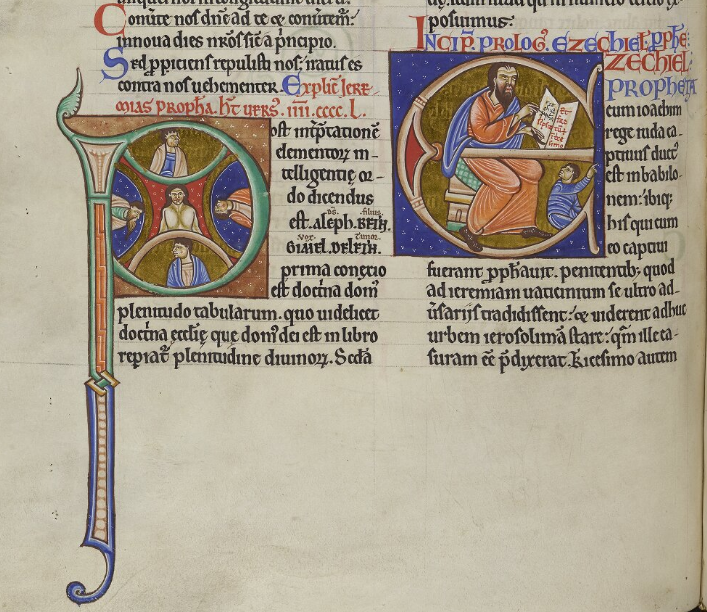 Conũte nos dñe ad te ꝫ conũtem̃:
innoua dies nr̃os sic̃ a pñcipio.
Sed ꝓiciens repulisti nos: iratus es
contra nos uehementer. Explic̃ Iere
mias propha. ht̃ uers̃. iiii. cccc. L.
Post int̃ptationẽ
elementoꝝ in-
telligentiẹ or-
do dicendus
est. aleph. BETH.
GIMEL. DELETH.
prima conexio
est doct̃na domꝰ
plenitudo tabularum. quo uidelicet
doct̃na ecclie que domꝰ dei est in libro
repiat̃ plenitudine diuinoꝝ. Sc̃da
posuimus:
Incip̃. prologꝰ. Ezechiel. ꝓphe
EZECHIEL
PROPHETA
cum ioachim
rege iuda ca-
ptiuus duct̃
est in babilo-
nem: ibiqꝫ
his qui cum
eo captiui
fuerant ꝓphauit. penitentibꝫ quod
ad ieremiam uaticinium se ultro ad-
ũsariis tradidissent: ꝫ uiderent adhuc
urbem ierosolimã stare: qm̃ ille ca-
suram eẽ p̃dixerat. Tricesimo autem